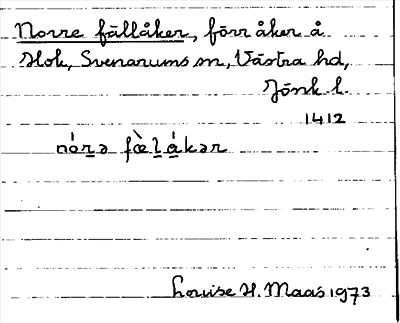 Norre fällåker, förr åker å
Hok, Svenarums sn, Västra hd,
Jönk l.
1412
nórə fæ̀lákər
Louise H. Maas 1973